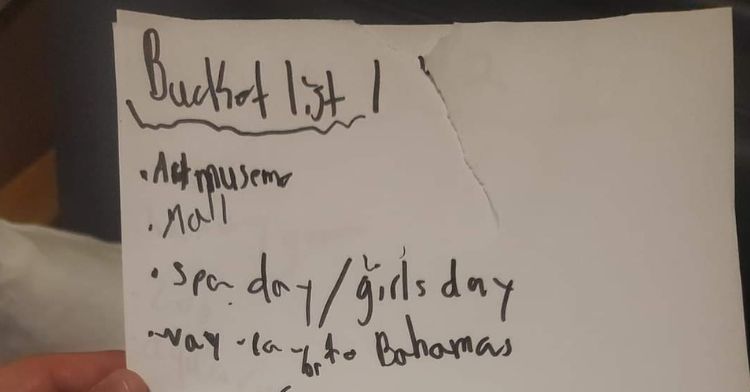 Bucket list 1
• Art musem
• Mall
• spa day/girls day
• vay-ca to Bahamas